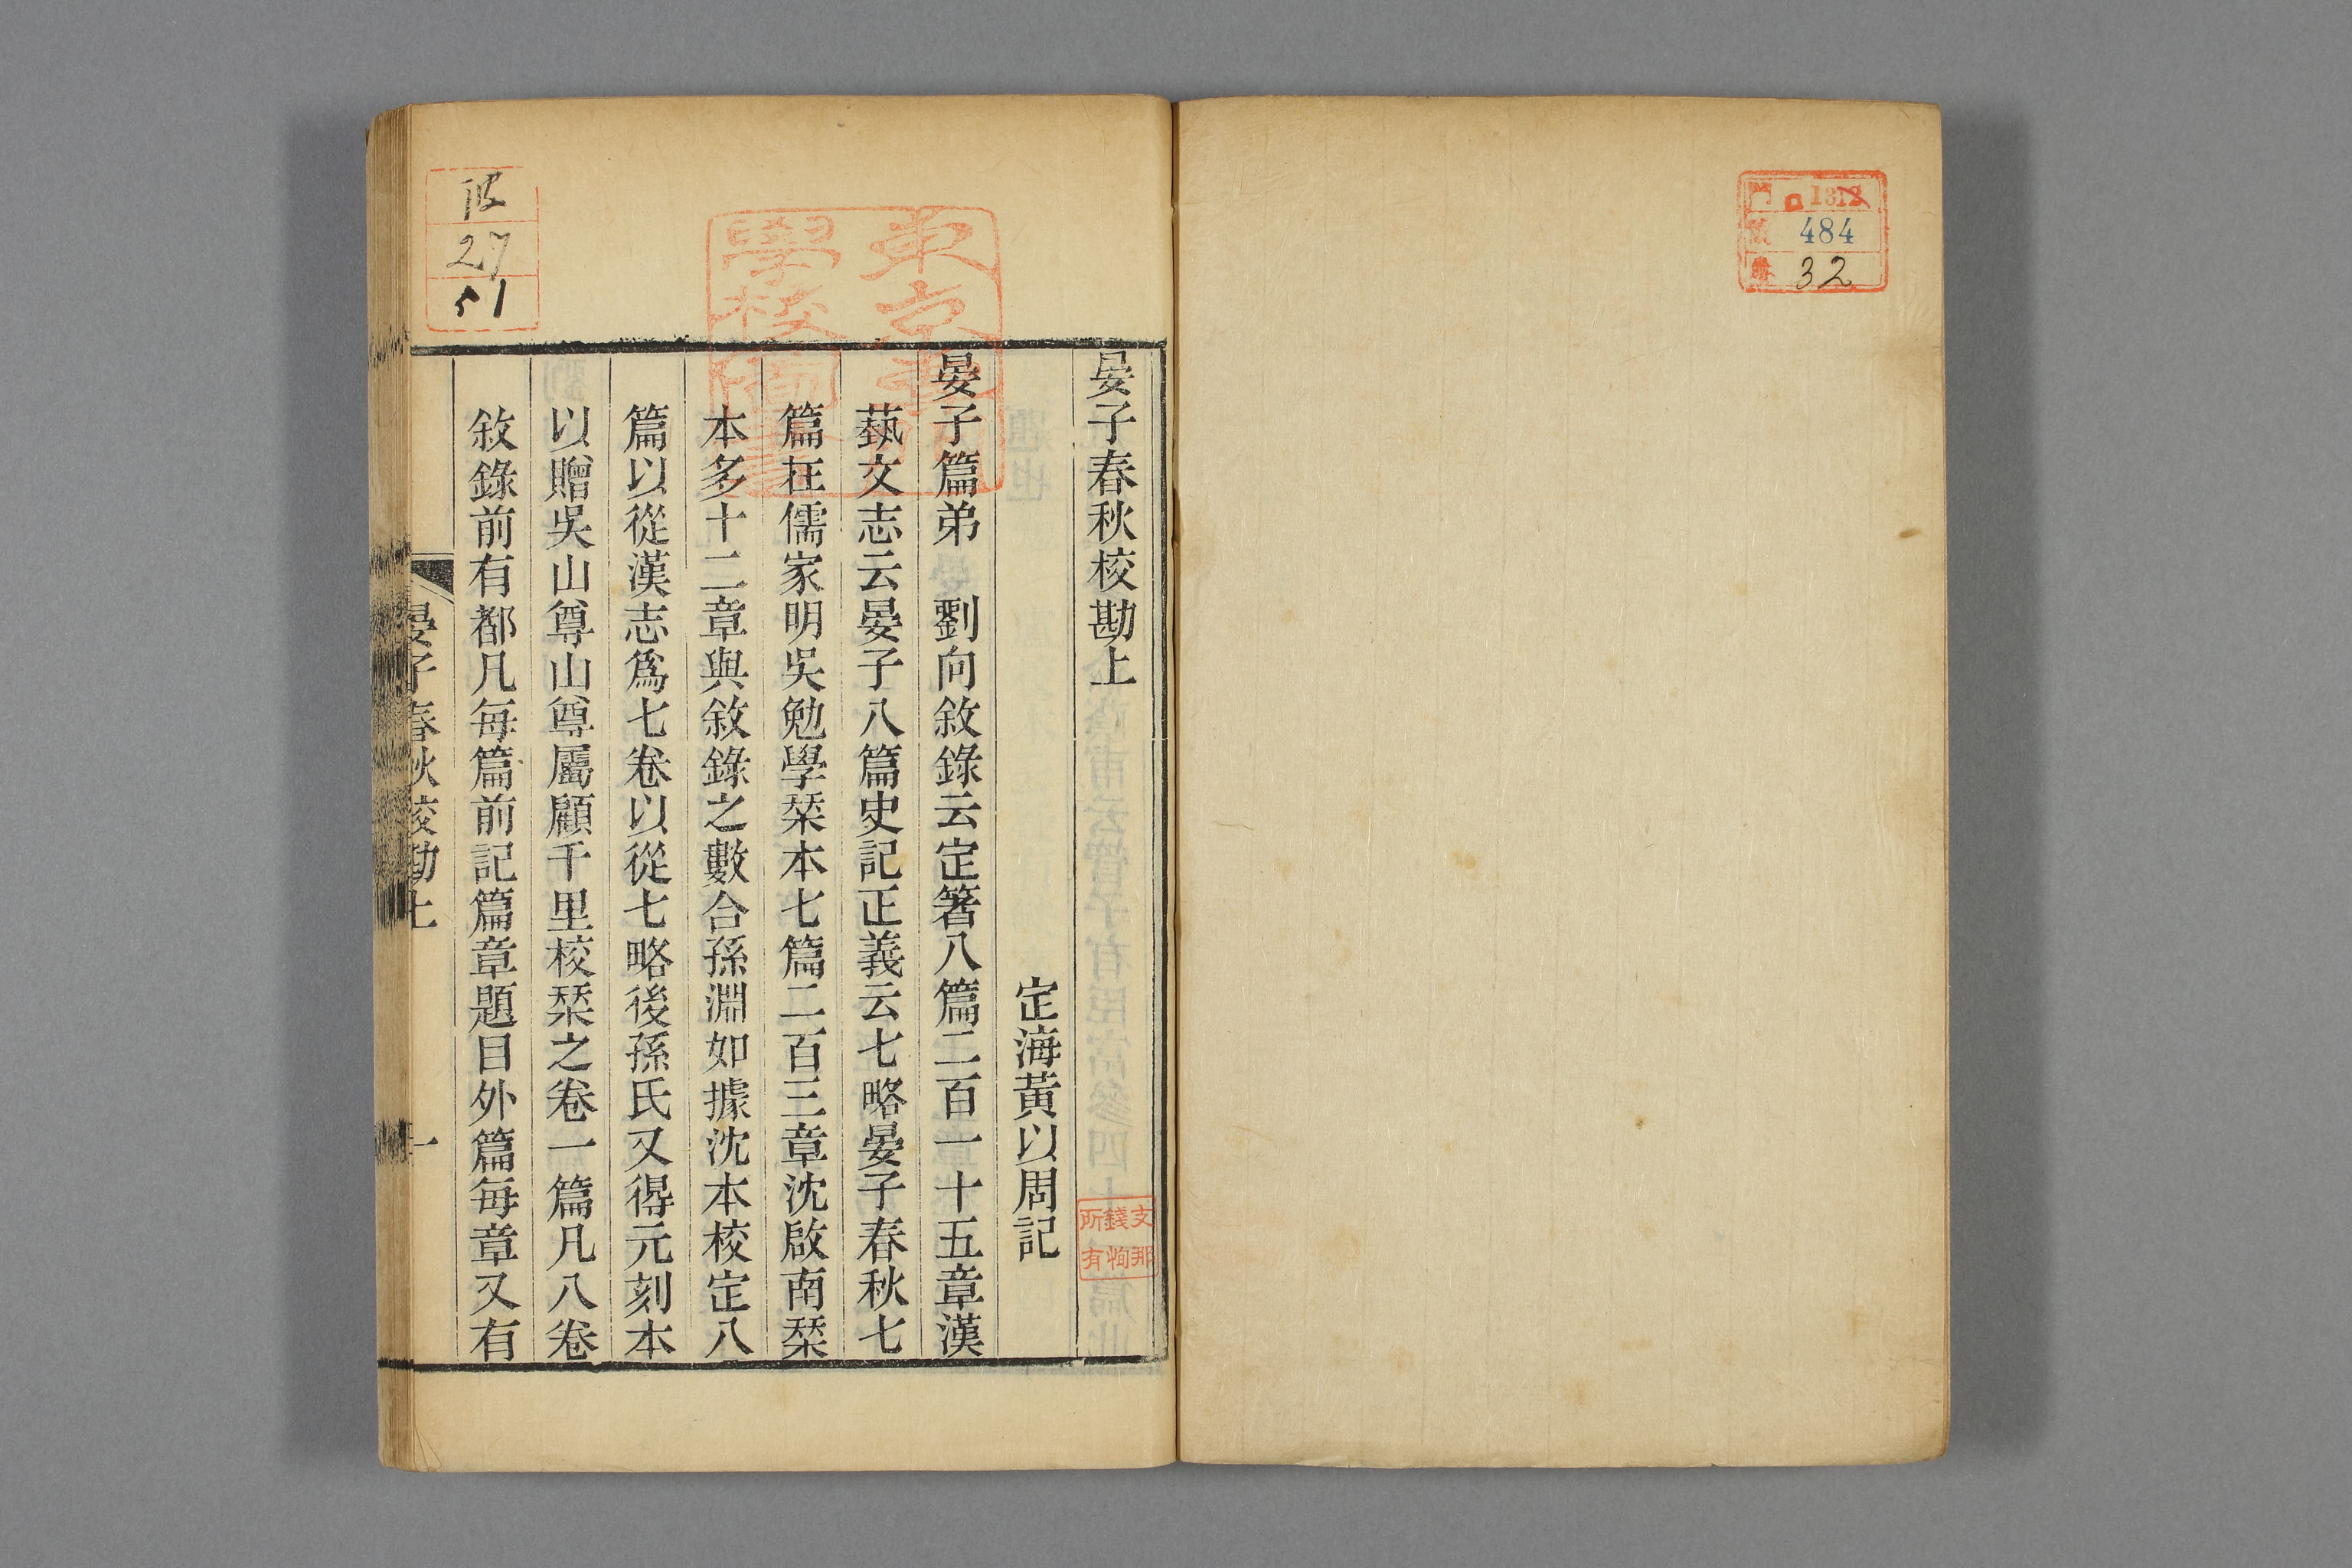 1312
484
32
晏子春秋校勘上
定海黃以周記
晏子篇弟　劉向敘錄云定箸八篇二百一十五章漢
蓺文志云晏子八篇史記正義云七略晏子春秋七
篇在儒家明吳勉學栞本七篇二百三章沈啟南栞
本多十二章與敘錄之數合孫淵如據沈本校定八
篇以從漢志爲七卷以從七略後孫氏又得元刻本
以贈吳山尊山尊屬顧千里校栞之卷一篇凡八卷
敘錄前有都凡每篇前記篇章題目外篇每章又有
晏子春秋校勘上
一
支那
錢恂
所有
27
51